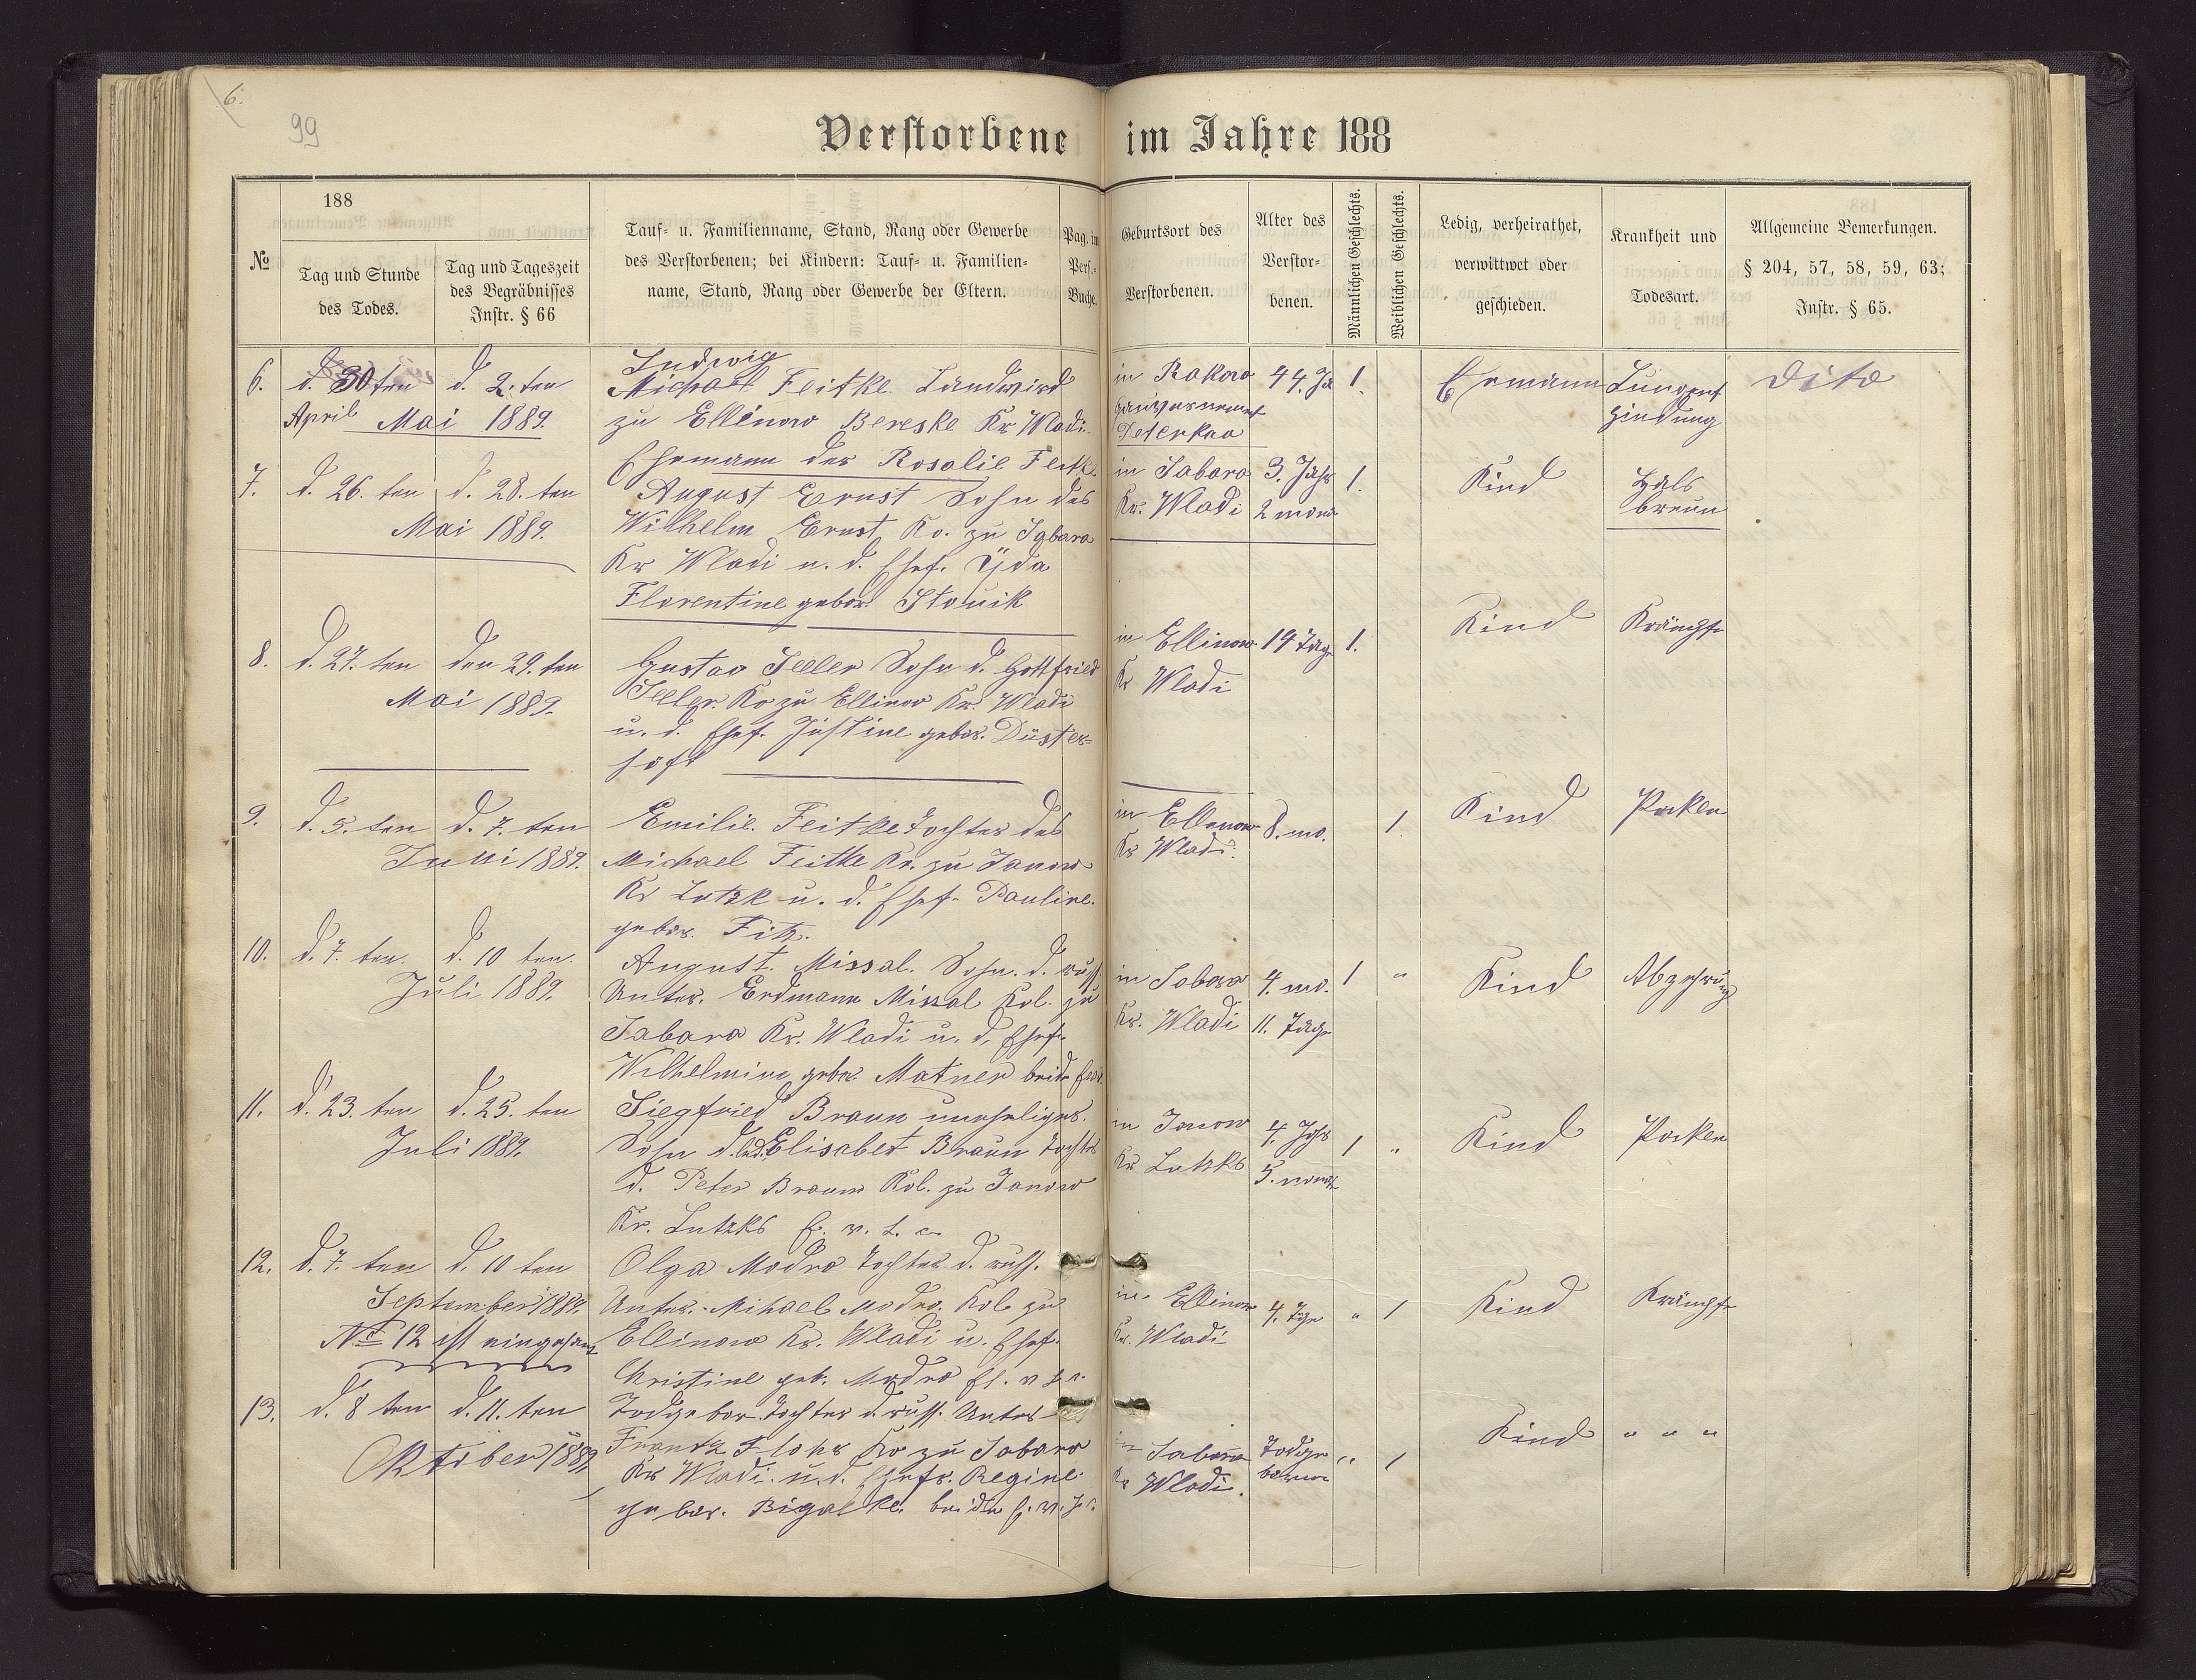 6.
99
Verstorbene im Jahre 188
№
188
Tag und Stunde
des Todes.
Tag und Tageszeit
des Begräbnisses
Instr. § 66
Tauf- u. Familienname, Stand, Rang oder Gewerbe
des Verstorbenen; bei Kindern: Tauf- u. Familien-
name, Stand, Rang oder Gewerbe der Eltern.
Pag. im
Pers.-
Buche.
Geburtsort des
Verstorbenen.
Alter des
Verstor-
benen.
Männlichen Geschlechts.
Weiblichen Geschlechts.
Ledig, verheirathet,
verwittwet oder
geschieden.
Krankheit und
Todesart.
Allgemeine Bemerkungen.
§ 204, 57, 58, 59, 63;
Instr. § 65.
6.
d. 30ten
April
d. 2. ten
Mai 1889.
Ludwig
Michael Feitke. Landwird
zu Ellinow Bereske Kr Wladi.
Ehemann der Rosalie Feitk.
in Rakow
Peterkao
44. Ja
1.
Ehmann
Lungent
zindung
Dito
7.
d. 26. ten
d. 28. ten
Mai 1889.
August Ernst Sohn des
Wilhelm Ernst Ko. zu Jabara
Kr Wladi u. d. Ehef. Ida
Florentine gebor. Stouik
in Jabara
Kr. Wladi
3. Jahr
2 mona
1.
Kind
Hals
breun
8.
d. 27. ten
den 29. ten
Mai 1889.
Gustav Seeler Sohn d. Gottfried
Seeler. Ko zu Ellinow Kr. Wladi
u. d. Ehef. Justine gebor. Düster-
höft
in Ellinow
Kr Wladi
19 Tage
1.
Kind
Krämpfe
9.
d. 5. ten
d. 7. ten
Juni 1889.
Emilie. Feitke Tochter des
Michael Feitke Ko. zu Janow
Kr Lutzk u. d. Ehef. Pauline.
gebor. Fitz.
in Ellenow
Kr Wladi.
8. mo.
1
Kind
Pocken
10.
d. 7. ten.
d. 10 ten.
Juli 1889.
August. Missal. Sohn. d. russ.
Unter. Erdmann Missal Kol. zu
Jabara Kr. Wladi u. d. Ehef.
Wilhelmine gebor. Matner beide
in Jabara
Kr. Wladi
4. mo.
11. Tage
1 "
Kind
Abzehrung
11.
d. 23. ten
d. 25. ten
Juli 1889.
Siegfried Braun uneheliger.
Sohn d. led. Elisabet Braun Tochter
d. Peter Braun Kol. zu Janow
Kr. Lutzks E. v. L. c.
in Janow
Kr Lutzks
4. Jahr
5. monat
1 "
Kind
Pocken
12.
d. 7. ten
d. 10 ten
September 1889.
Nr 12 ist
Olga Modro Tochter d. russ.
Unter. Mihael Modro. Kol. zu
Ellinow Kr. Wladi u. Ehef.
Christine geb. Modro
in Ellinow
Kr. Wladi
4. Tage
" 1
Kind
Krämpfe
13.
d. 8 ten
d. 11. ten
Oktober 1889.
Todgebor. Tochter d. russ. Unter
Frantz Flohr Ko zu Jabara
Kr Wladi. u. d. Ehefr. Regine.
gebor. Bigalke. beide
in Jabara
Kr Wladi.
Todge
boren
" 1
Kind
" " "